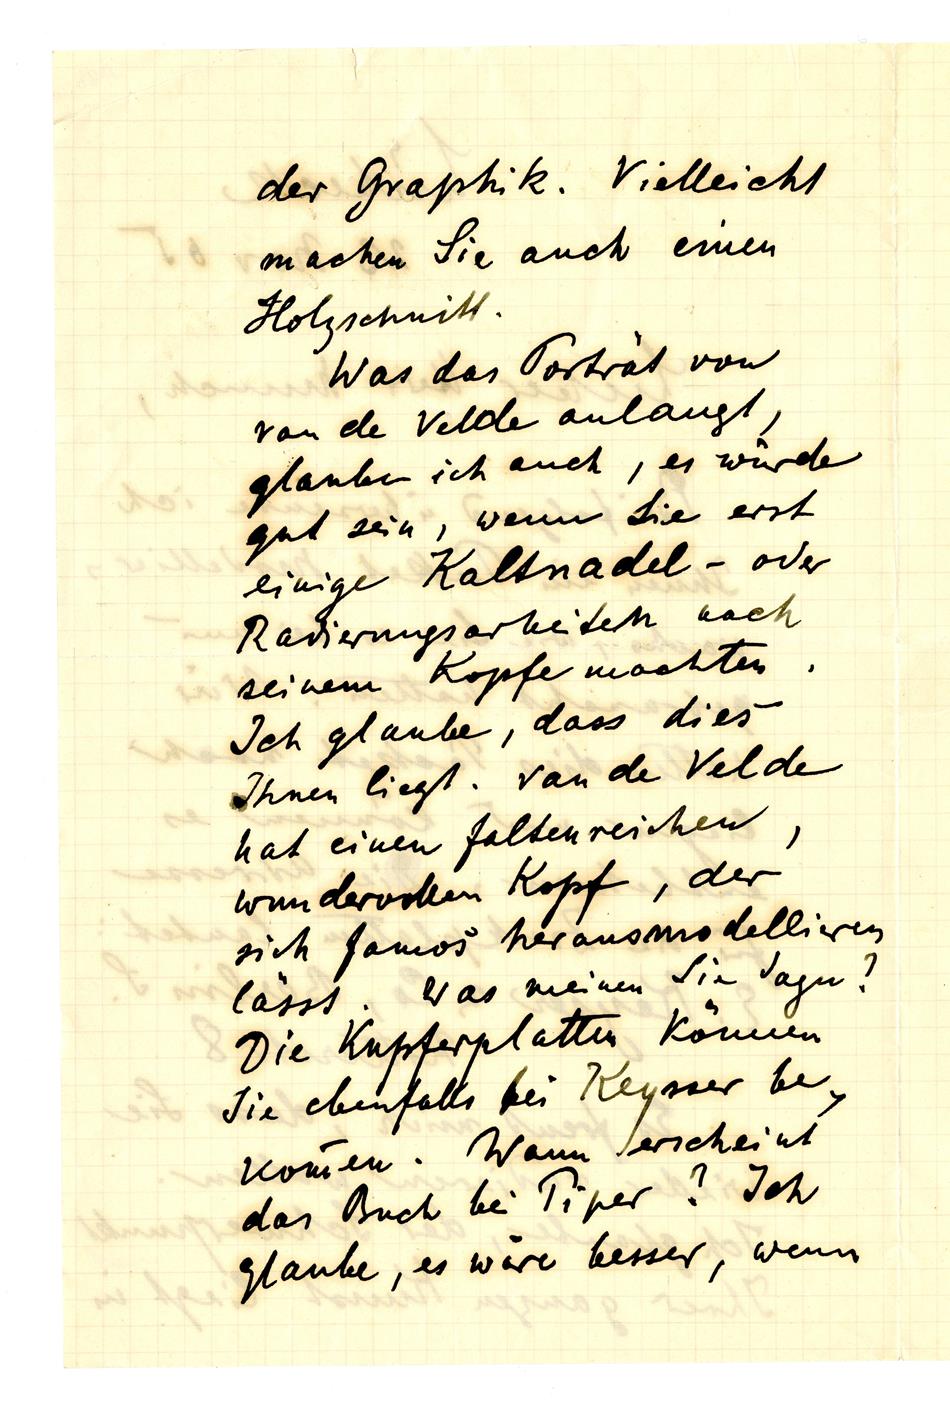 der Graphik. Vielleicht
machen Sie auch einen
Holzschnitt.
Was das Porträt von
van de Velde anlangt,
glaube ich auch, es würde
gut sein, wenn Sie erst
einige Kaltnadel- oder
Radierungsarbeiten nach
seinem Kopfe machten.
Ich glaube, dass dies
Ihnen liegt. Van de Velde
hat einen faltenreichen,
wundervollen Kopf, der
sich famos herausmodellieren
lässt. Was meinen Sie dazu?
Die Kupferplatten können
Sie ebenfalls bei Keysser be-
kom̄en. Wann erscheint
das Buch bei Piper? Ich
glaube, es wäre besser, wenn